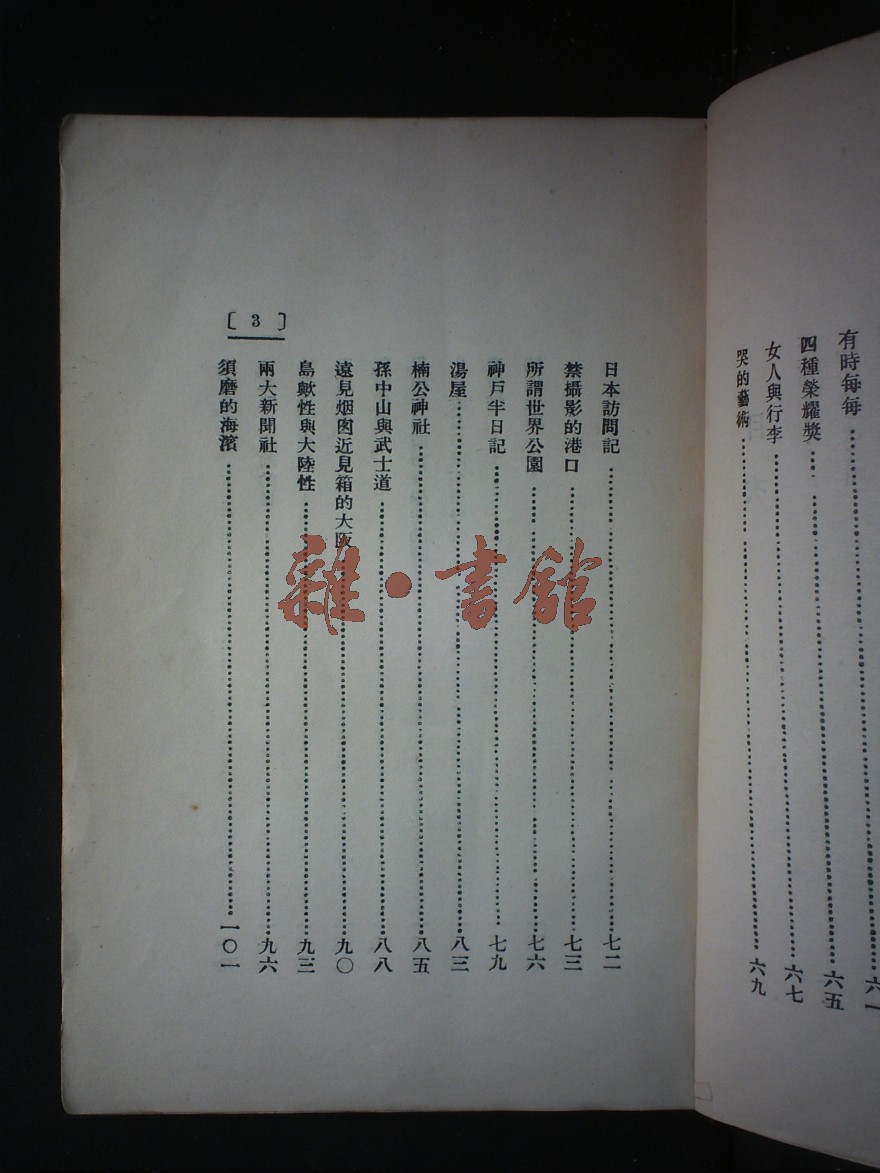 有時每每……六一
四種榮耀獎……六五
女人與行李……六七
哭的藝術……六九
[ 3 ]
日本訪問記……七二
禁攝影的港口……七三
所謂世界公園……七六
神戶半日記……七九
湯屋……八三
楠公神社……八五
孫中山與武士道……八八
遠見烟囱近見箱的大阪……九〇
島歟性與大陸性……九三
兩大新聞社……九六
須磨的海濱……一〇一
雜·書館